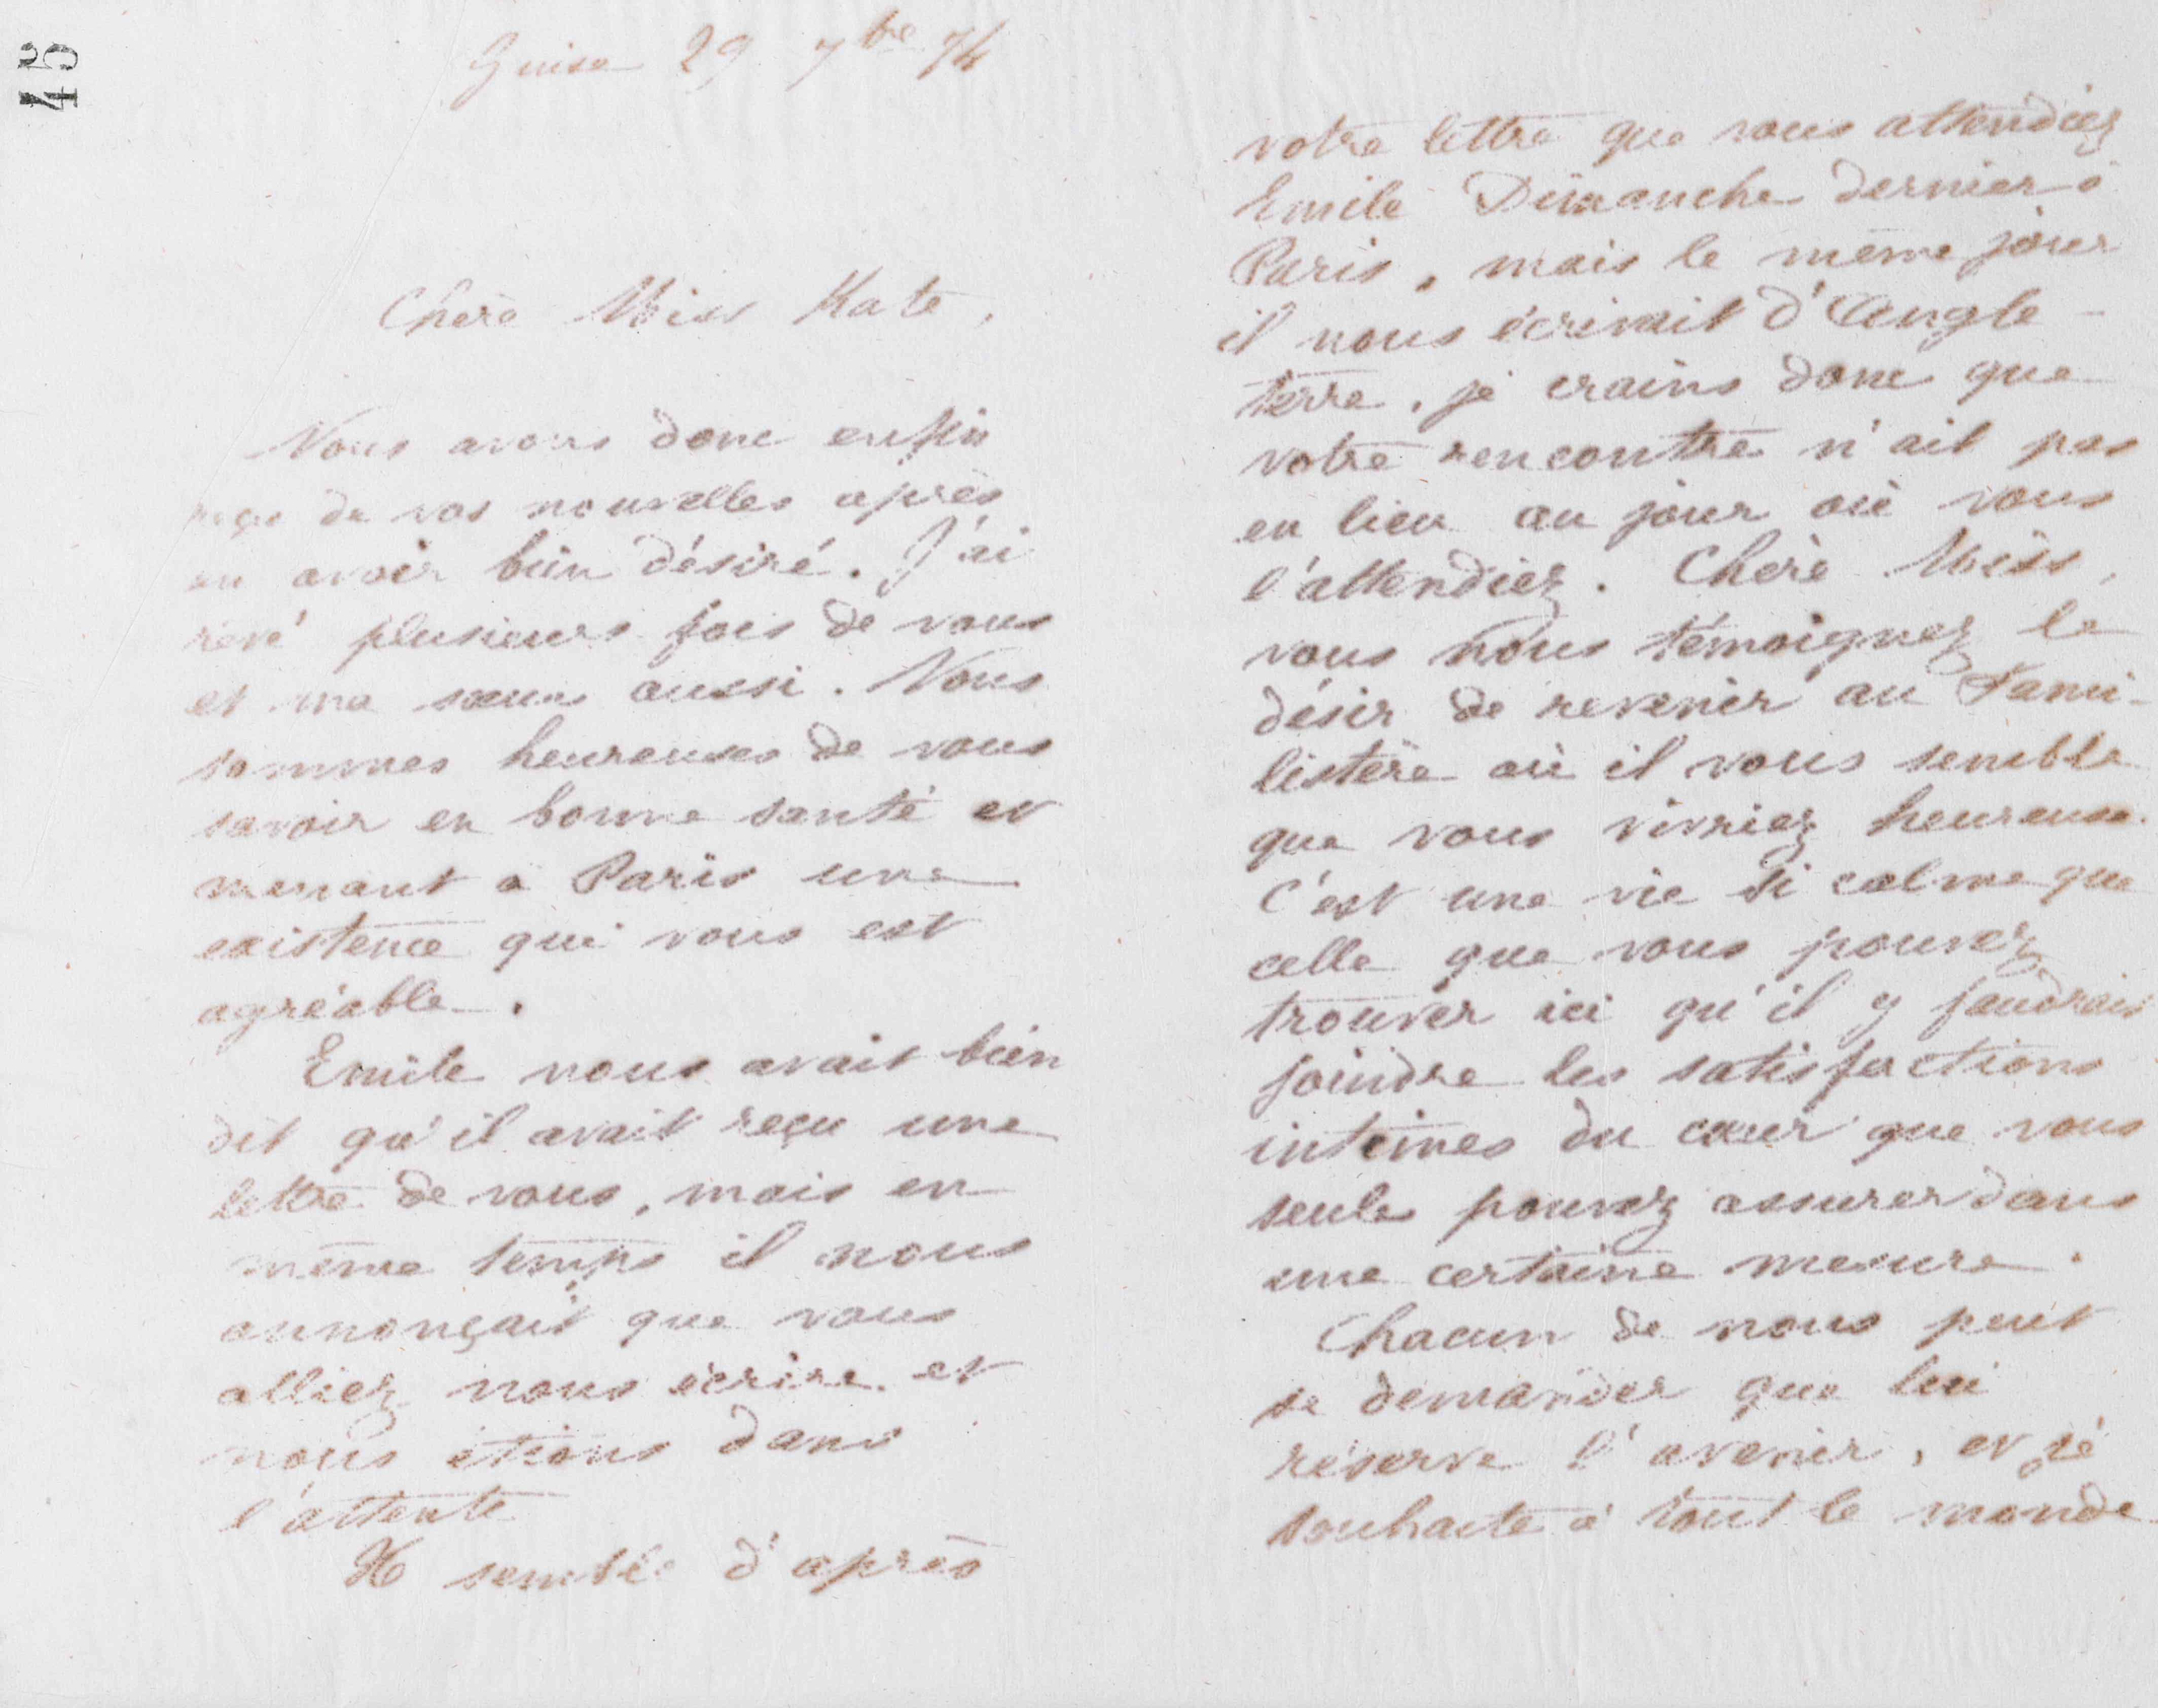 45
Guise 29 7bre 74
Chère Miss Kate,
Nous avons donc enfin
reçu de vos nouvelles après
en avoir bien désiré. J'ai
rêvé plusieurs fois de vous
et ma sœur aussi. Nous
sommes heureuses de vous
savoir en bonne santé et
menant à Paris une
existence qui vous est
agréable.
Emile nous avait bien
dit qu'il avait reçu une
lettre de vous, mais en
même temps il nous
annonçait que vous
alliez nous écrire et
nous étions dans
l'attente
Il semble d'après
votre lettre que vous attendiez
Emile Dimanche dernier à
Paris, mais le même jour
il nous écrivait d'Angle-
terre, je crains donc que
votre rencontre n'ait pas
eu lieu au jour où vous
l'attendiez. Chère Miss,
vous nous témoignez le
désir de revenir au Fami-
listère où il vous semble
que vous vivriez heureuse.
C'est une vie si calme que
celle que vous pouvez
trouver ici qu'il y faudrait
joindre les satisfactions
intimes du cœur que vous
seule pouvez assurer dans
une certaine mesure.
Chacun de nous peut
se demander que lui
réserve l'avenir, et je
souhaite à tout le monde